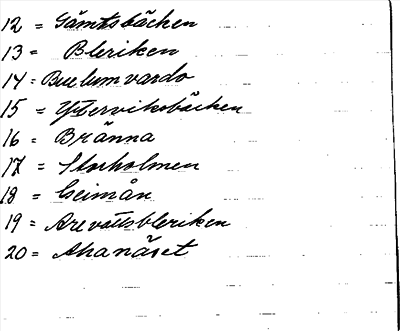 12 = Jämtsbäcken
13 = Bleriken
14 = Buelumvardo
15 = Ytterviksbäcken
16 = Bränna
17 = Storholmen
18 =
19 = Arevattsbleriken
20 = Ahanäset